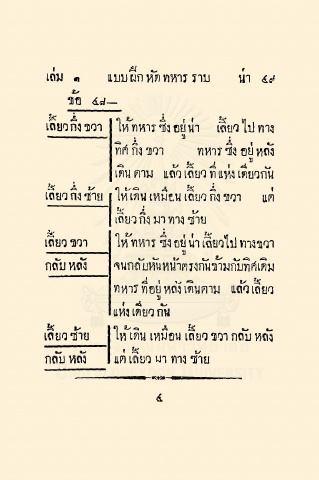 เล่ม ๑ แบบ ฝึก หัด ทหาร ราบ น่า ๔๙
ข้อ ๔๘—
เลี้ยว กึ่ง ขวา ให้ ทหาร ซึ่ง อยู่ น่า เลี้ยว ไป ทาง
ทิศ กึ่ง ขวา ทหาร ซึ่ง อยู่ หลัง
เดิน ตาม แล้ว เลี้ยว ที่ แห่ง เดียว กัน
เลี้ยว กึ่ง ซ้าย ให้ เดิน เหมือน เลี้ยว กึ่ง ขวา แต่
เลี้ยว กึ่ง มา ทาง ซ้าย
เลี้ยว ขวา ให้ ทหาร ซึ่ง อยู่ น่า เลี้ยว ไป ทาง ขวา
กลับ หลัง จน กลับ หัน หน้า ตรง กัน ข้าม กับ ทิศ เดิม
ทหาร ที่ อยู่ หลัง เดิน ตาม แล้ว เลี้ยว
แห่ง เดียว กัน
เลี้ยว ซ้าย ให้ เดิน เหมือน เลี้ยว ขวา กลับ หลัง
กลับ หลัง แต่ เลี้ยว มา ทาง ซ้าย
๔